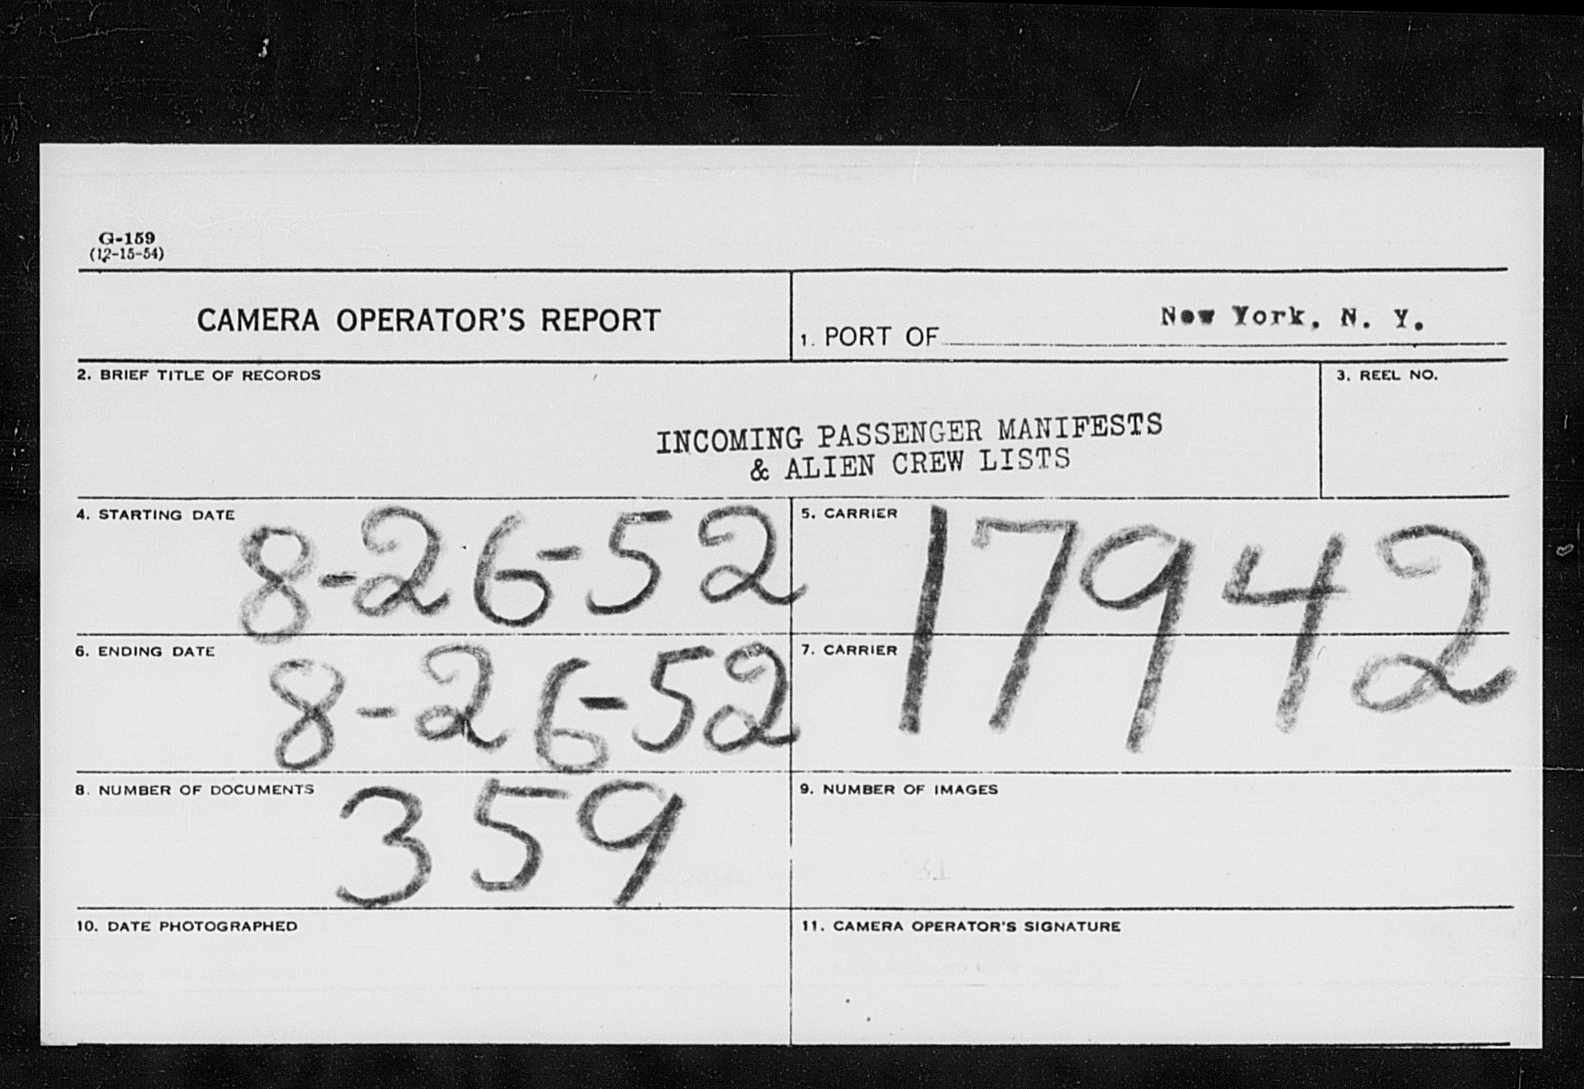 G-159
(12-15-54)
CAMERA OPERATOR'S REPORT
1. PORT OF New York, N. Y.
2. BRIEF TITLE OF RECORDS
3. REEL NO.
INCOMING PASSENGER MANIFESTS
& ALIEN CREW LISTS
4. STARTING DATE 8-26-52
5. CARRIER 17942
6. ENDING DATE 8-26-52
7. CARRIER
8. NUMBER OF DOCUMENTS 359
9. NUMBER OF IMAGES
10. DATE PHOTOGRAPHED
11. CAMERA OPERATOR'S SIGNATURE